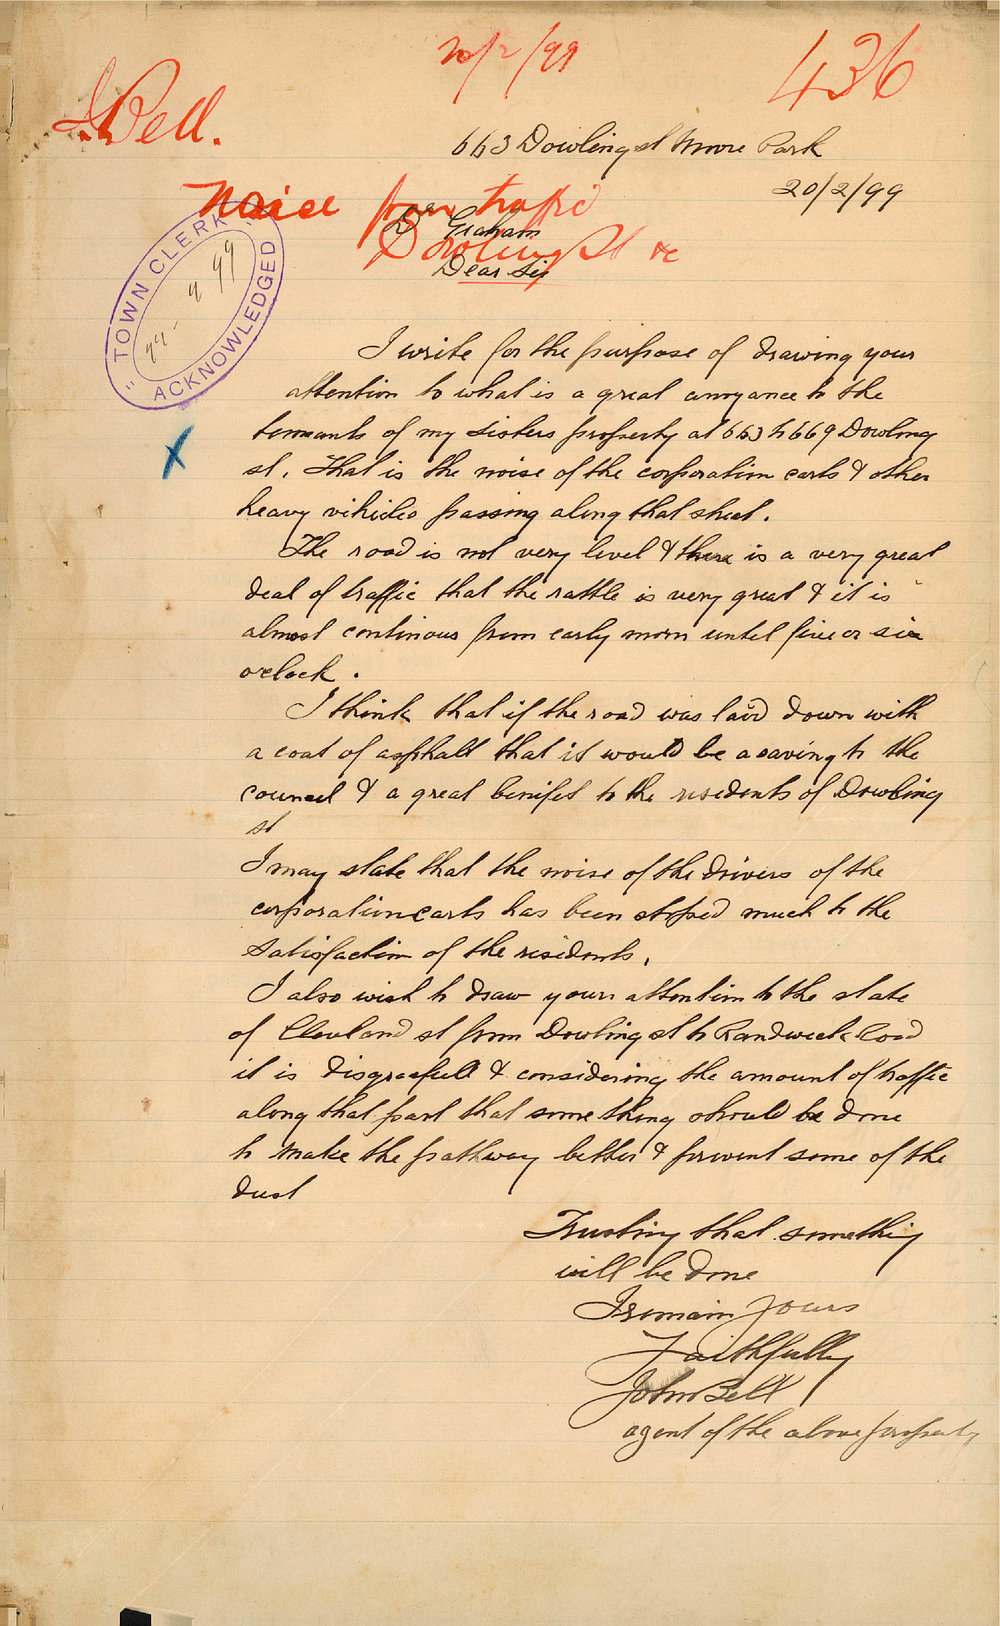 20/2/99
436
J. Bell.
663 Dowling st Moore Park
20/2/99
Noise from traffic
Dr Graham
Dowling St &c
Dear Sir
"TOWN CLERK"
99
ACKNOWLEDGED
X
I write for the purpose of drawing your
attention to what is a great annyance to the
tennants of my sisters property at 663 to 669 Dowling
st. That is the noise of the corporation carts & other
heavy vihicles passing along that street.
The road is not very level & there is a very great
deal of traffic that the rattle is very great & it is
almost continous from early morn until five or six
oclock.
I think that if the road was laid down with
a coat of asphalt that it would be a saving to the
council & a great benifet to the residents of Dowling
st
I may state that the noise of the drivers of the
corporation carts has been stopped much to the
satisfaction of the residents.
I also wish to draw your attention to the state
of Cleveland st from Dowling st to Randwick Road
it is disgracefull & considering the amount of traffic
along that part that some thing should be done
to make the pathway better & prevent some of the
dust
Trusting that something
will be done
I remain yours
Faithfully
John Bell
agent of the above property